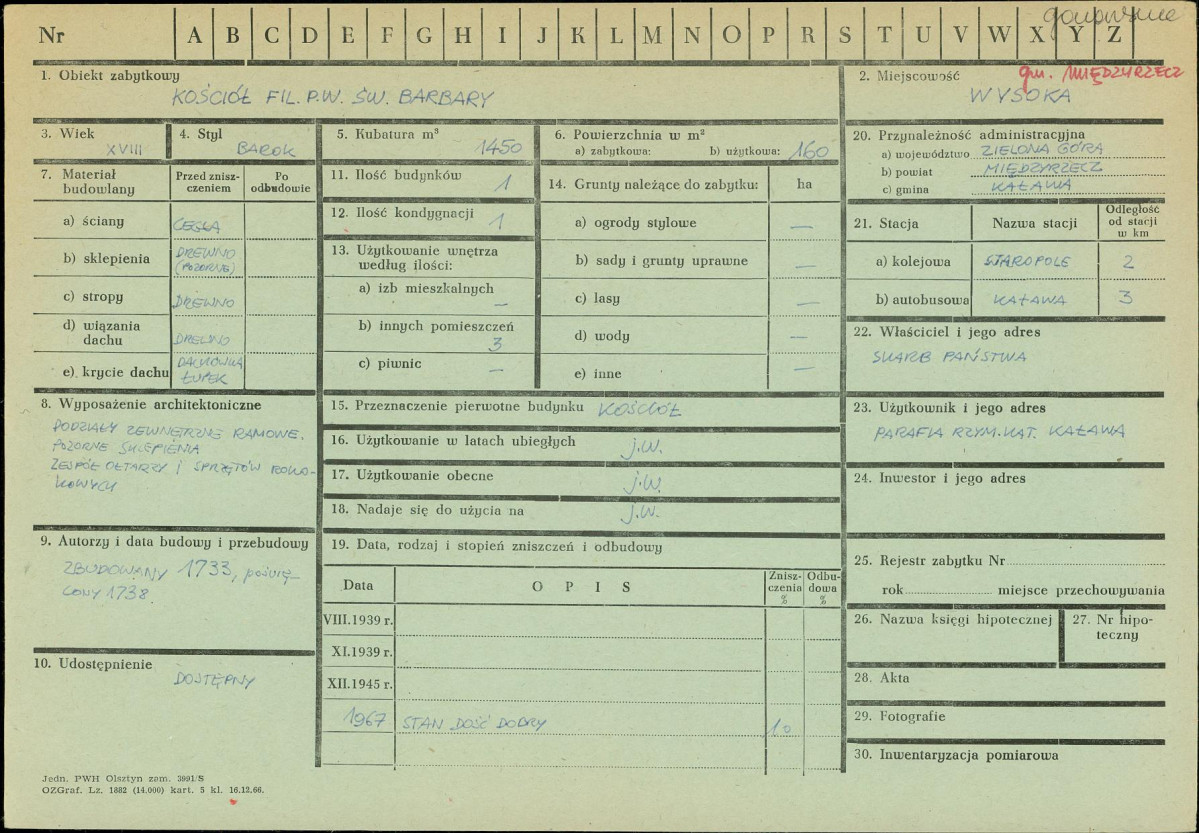 gorzowskie
Nr A B C D E F G H I J K L M N O P R S T U V W X Y Z
1. Obiekt zabytkowy
KOŚCIÓŁ FIL. P.W. ŚW. BARBARY
2. Miejscowość
gm. MIĘDZYRZECZ
WYSOKA
3. Wiek
XVIII
4. Styl
BAROK
5. Kubatura m³
1450
6. Powierzchnia w m²
a) zabytkowa: b) użytkowa: 160
7. Materiał budowlany
Przed zniszczeniem
Po odbudowie
a) ściany CEGŁA
b) sklepienia DREWNO
(POZORNE)
c) stropy DREWNO
d) wiązania dachu DREWNO
e) krycie dachu DACHÓWKA
ŁUPEK
8. Wyposażenie architektoniczne
PODZIAŁY ZEWNĘTRZNE RAMOWE.
POZORNE SKLEPIENIA
ZESPÓŁ OŁTARZY I SPRZĘTÓW ROKO-
KOWYCH
9. Autorzy i data budowy i przebudowy
ZBUDOWANY 1733, poświę-
cony 1738.
10. Udostępnienie
DOSTĘPNY
11. Ilość budynków 1
12. Ilość kondygnacji 1
13. Użytkowanie wnętrza
według ilości:
a) izb mieszkalnych —
b) innych pomieszczeń 3
c) piwnic —
14. Grunty należące do zabytku: ha
a) ogrody stylowe —
b) sady i grunty uprawne —
c) lasy —
d) wody —
e) inne —
15. Przeznaczenie pierwotne budynku KOŚCIÓŁ
16. Użytkowanie w latach ubiegłych j.w.
17. Użytkowanie obecne j.w.
18. Nadaje się do użycia na j.w.
19. Data, rodzaj i stopień zniszczeń i odbudowy
Data OPIS Zniszczenia % Odbudowa %
VIII.1939 r.
XI.1939 r.
XII.1945 r.
1967 STAN DOŚĆ DOBRY 10
20. Przynależność administracyjna
a) województwo ZIELONA GÓRA
b) powiat MIĘDZYRZECZ
c) gmina KAŁAWA
21. Stacja Nazwa stacji Odległość od stacji w km
a) kolejowa STAROPOLE 2
b) autobusowa KAŁAWA 3
22. Właściciel i jego adres
SKARB PAŃSTWA
23. Użytkownik i jego adres
PARAFIA RZYM. KAT. KAŁAWA
24. Inwestor i jego adres
25. Rejestr zabytku Nr
rok miejsce przechowywania
26. Nazwa księgi hipotecznej
27. Nr hipo-
teczny
28. Akta
29. Fotografie
30. Inwentaryzacja pomiarowa
Jedn. PWH Olsztyn zam. 3991/S
OZGraf. Lz. 1882 (14.000) kart. 5 kl. 16.12.66.